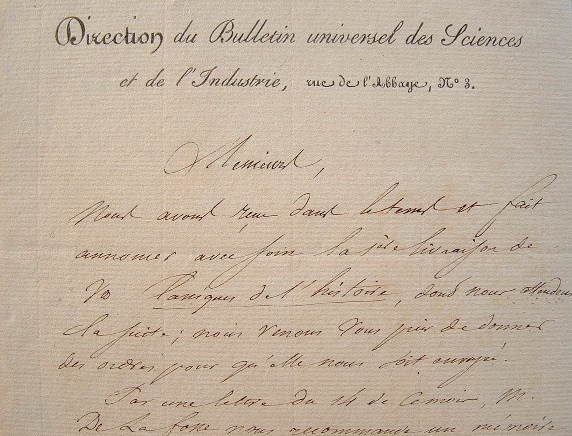 Direction du Bulletin universel des Sciences
et de l'Industrie, rue de l'Abbaye, N° 3.
Messieurs,
Nous avons reçu dans le tems et fait
annoncer avec soin la 1ère livraison de
Vos Classiques de l'histoire, dont nous attendons
la suite; nous venons vous prier de donner
des ordres pour qu'elle nous soit envoyée.
Par une lettre du 14 de ce mois, M.
De La fosse nous recommande un mémoire